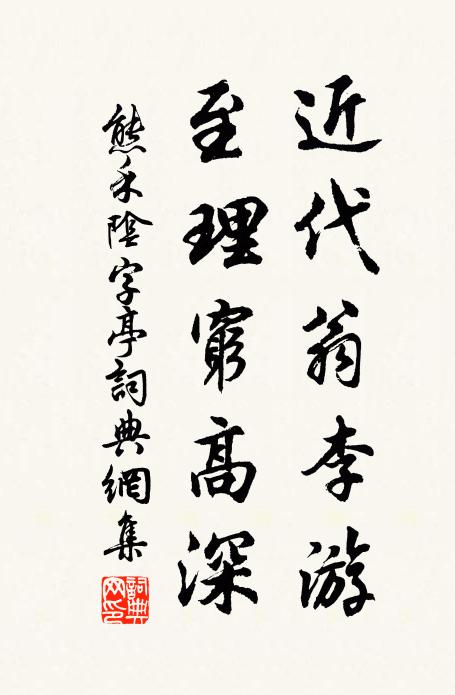 近代翁李游
至理窮高深
熊禾陰字亭詞典網集
詞典网印